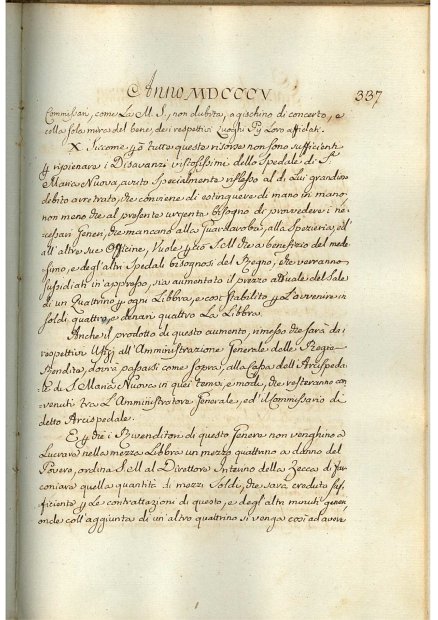 Anno MDCCCV
337
Commissari, come La M. S., non dubita, agischino di concerto, e
colla sola mira del bene, dei respettivi Luoghi Pij Loro affidati.
X. Siccome però tutte queste risorse non sono sufficienti
a ripienare i Disavanzi vistosissimi dello Spedale di S.a
Maria Nuova, avuto specialmente riflesso al di Lui grandioso
debito arretrato, che conviene di estinguere di mano in mano
non meno che al presente urgente bisogno di provvedere i ne,,
cessari Generi, che mancano alla Guardaroba, alla Spezieria, ed
all'altre sue Officine, Vuole perciò S. M. che a benefizio del mede
,,simo, e degl'altri Spedali bisognosi del Regno, che verranno
sussidiati in appresso, sia aumentato il prezzo attuale del Sale
di un Quattrino per ogni Libbra, e così stabilito per L'avvenire in
soldi quattro, e denari quattro La Libbra.
Anche il prodotto di questo aumento, rimesso che sarà da
respettivi Ufizj all'Amministrazione Generale delle Regie
Rendite, dovrà passarsi come sopra, alla Cassa dell'Arcispeda
,,le di S. Maria Nuova in quei tempi, e modi, che resteranno con
,,venuti tra L'Amministratore Generale, ed il Commissario di
detto Arcispedale.
E perchè i Rivenditori di questo Genere non venghino a
Lucrare nella mezza Libbra un mezzo quattrino a danno del
Povero, ordina S. M. al Direttore Interino della Zecca di far
coniare quella quantità di mezzi Soldi, che sarà creduta suf,,
ficiente per Le contrattazioni di questo, e degl'altri minuti generi,
onde coll'aggiunta di un'altro quattrino si venga così ad avere